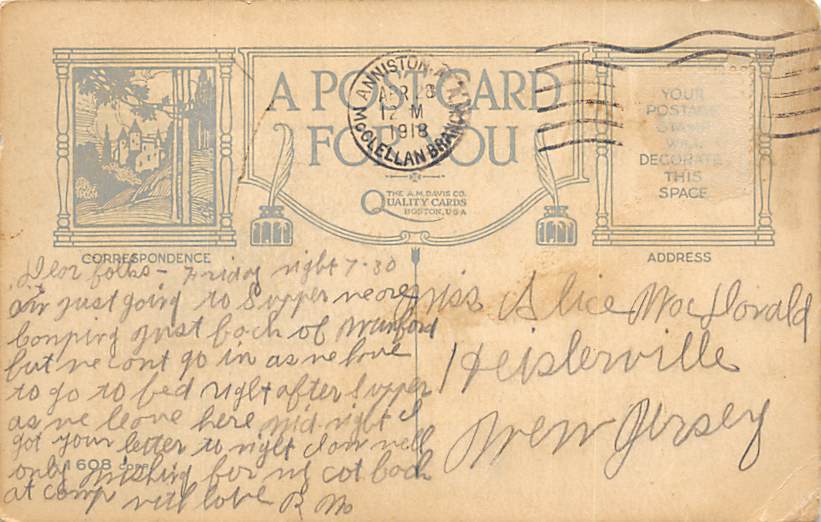 A POST CARD
FOR YOU
THE A.M. DAVIS CO.
QUALITY CARDS
BOSTON, U.S.A
ANNISTON, A
APR 28
12 M
1918
McCLELLAN BRANCH
YOUR
POSTAGE
STAMP
WILL
DECORATE
THIS
SPACE
CORRESPONDENCE
ADDRESS
Dear folks - Friday night 7-30
am just going to Supper we are
camping just back of
but we cont go in as we have
to go to bed right after Supper
as we leave here mid night I
got your letter to night I am well
only wishing for my cot back
at camp with love R M
608
Miss Alice MacDonald
Heislerville
New Jersey